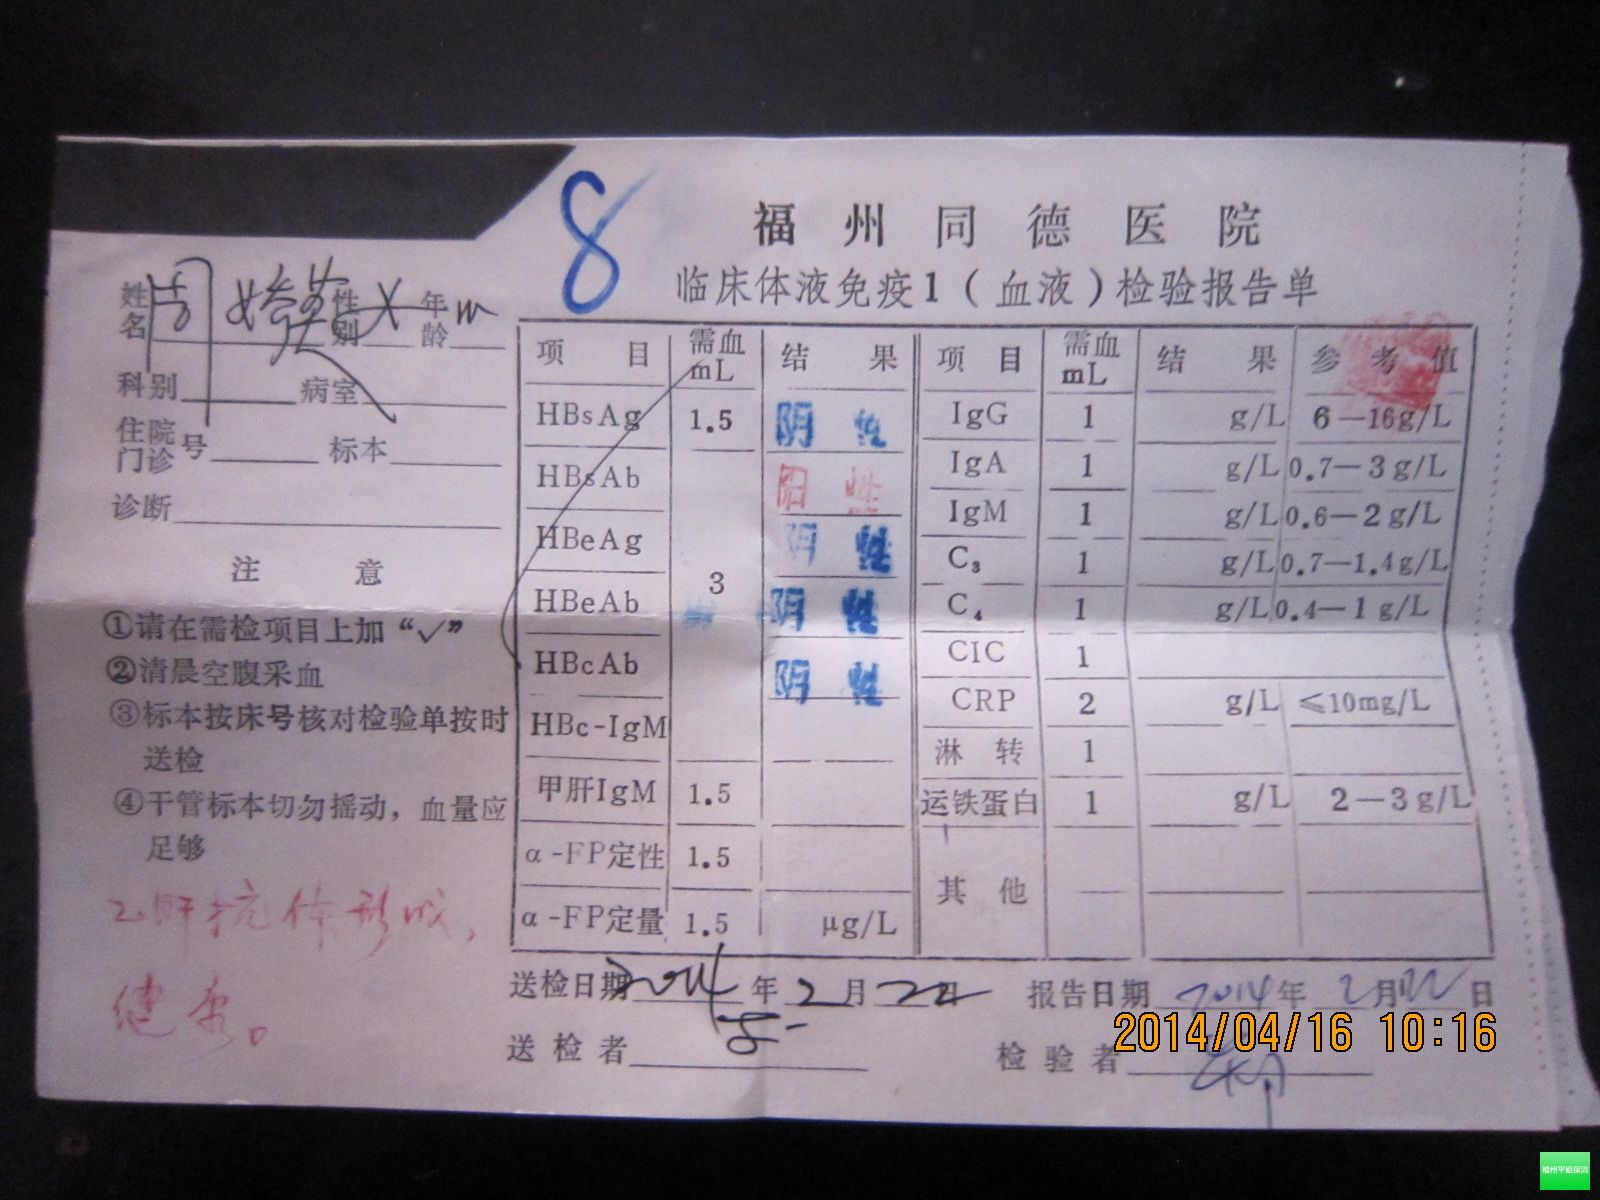 8
福州同德医院
临床体液免疫1（血液）检验报告单
姓名 周 性别 年龄
科别 病室
住院门诊号 标本
诊断
注意
①请在需检项目上加“√”
②清晨空腹采血
③标本按床号核对检验单按时
送检
④干管标本切勿摇动，血量应
足够
乙肝抗体形成，
健康。
项目 需血mL 结果
HBsAg 1.5 阴性
HBsAb 阳性
HBeAg 阴性
3
HBeAb 阴性
HBcAb 阴性
HBc-IgM
甲肝IgM 1.5
α-FP定性 1.5
α-FP定量 1.5 μg/L
项目 需血mL 结果 参考值
IgG 1 g/L 6—16g/L
IgA 1 g/L 0.7—3g/L
IgM 1 g/L 0.6—2g/L
C₃ 1 g/L 0.7—1.4g/L
C₄ 1 g/L 0.4—1g/L
CIC 1
CRP 2 g/L ≤10mg/L
淋转 1
运铁蛋白 1 g/L 2—3g/L
其他
送检日期 2014年2月22日 报告日期 2014年2月22日
送检者 检验者
2014/04/16 10:16
福州平姐保洁